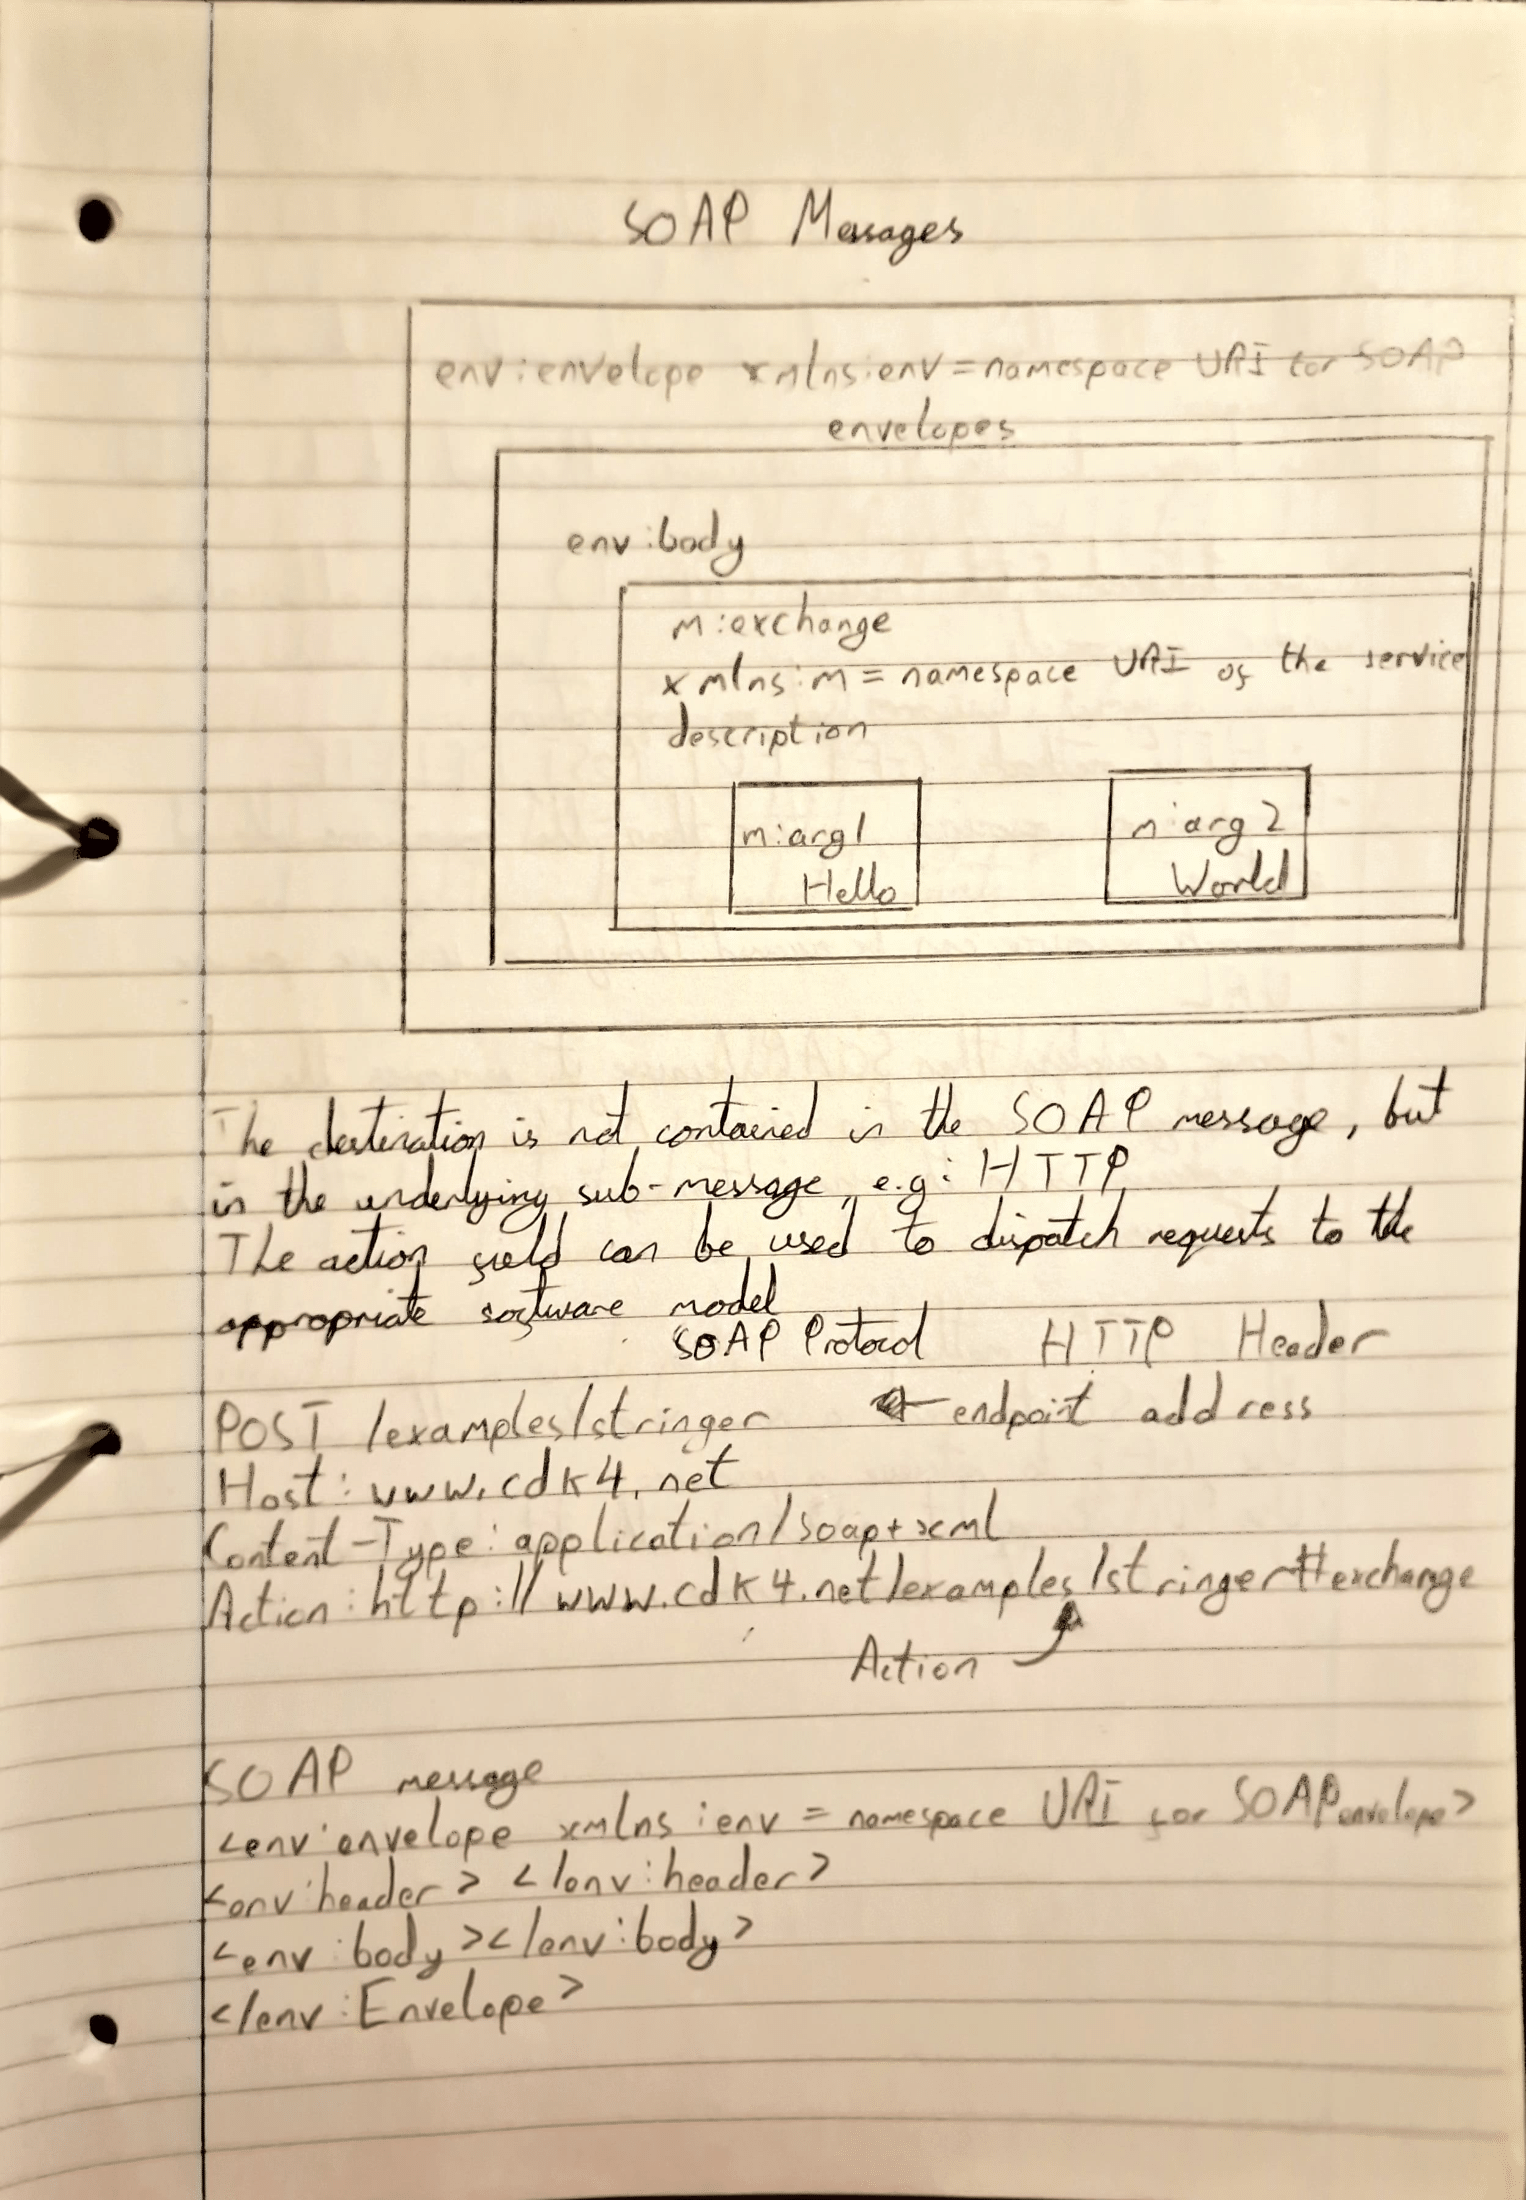 SOAP Messages
env:envelope xmlns:env = namespace URI for SOAP
envelopes
env:body
m:exchange
xmlns:m = namespace URI of the service
description
m:arg1
Hello
m:arg2
World
The destination is not contained in the SOAP message, but
in the underlying sub-message, e.g: HTTP
The action field can be used to dispatch requests to the
appropriate software model
SOAP Protocol HTTP Header
POST /examples/stringer ← endpoint address
Host: www.cdk4.net
Content-Type: application/soap+xml
Action: http://www.cdk4.net/examples/stringer#exchange
Action
SOAP message
<env:envelope xmlns:env = namespace URI for SOAP envelope>
<env:header> </env:header>
<env:body></env:body>
</env:Envelope>